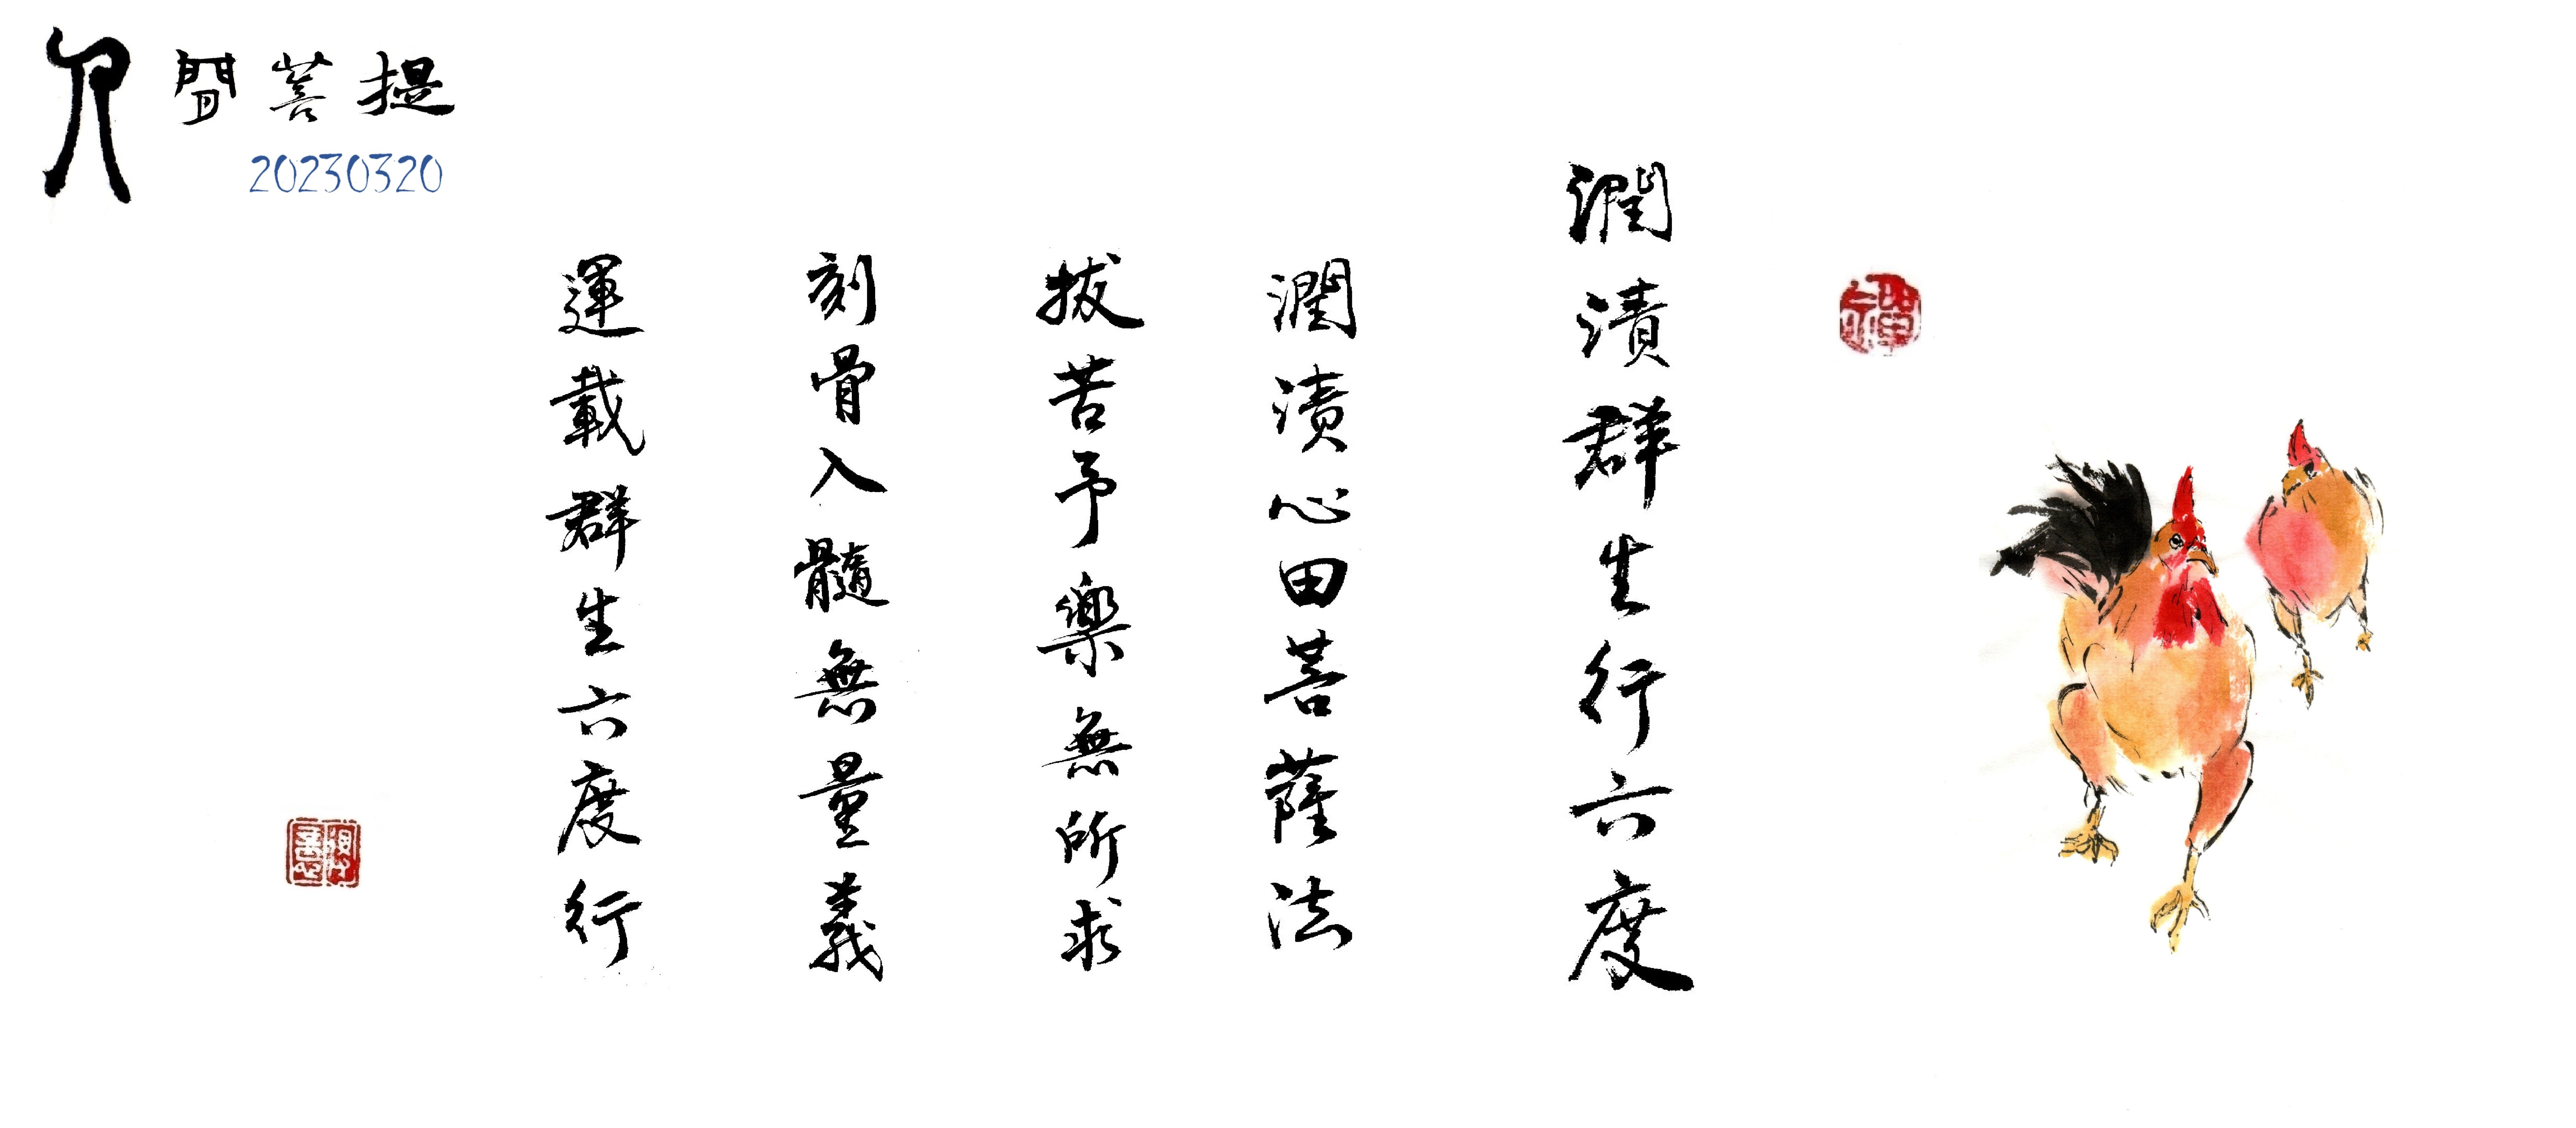 人間菩提
20230320
潤漬群生行六度
潤漬心田菩薩法
拔苦予樂無所求
刻骨入髓無量義
運載群生六度行